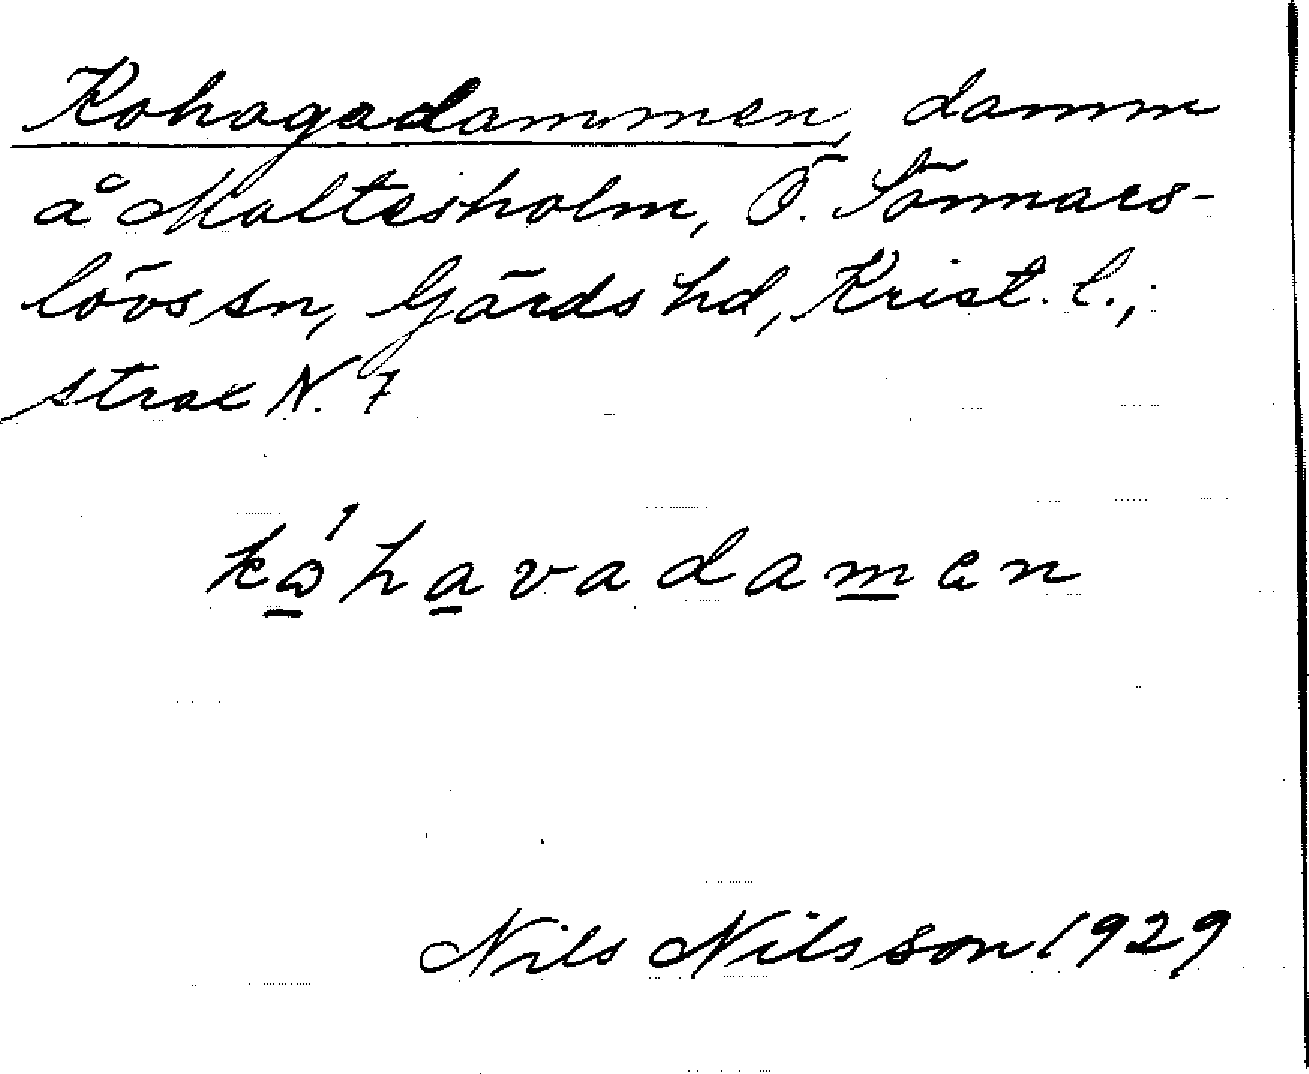 Kohagadammen, damm
å Maltesholm, Ö. Sönnars-
lövs sn, Gärds hd, Krist. l.,
strax N. 7
ko̱'ha̱vadam̱en
Nils Nilsson 1929